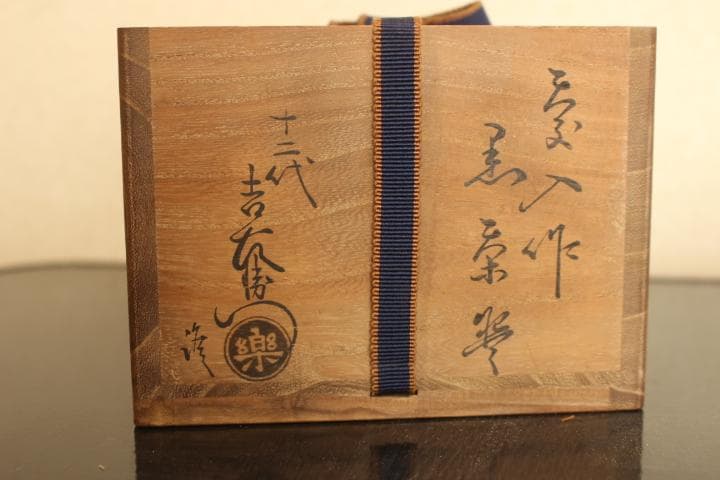 慶入作
黒茶盌
十二代
吉左衛門
樂